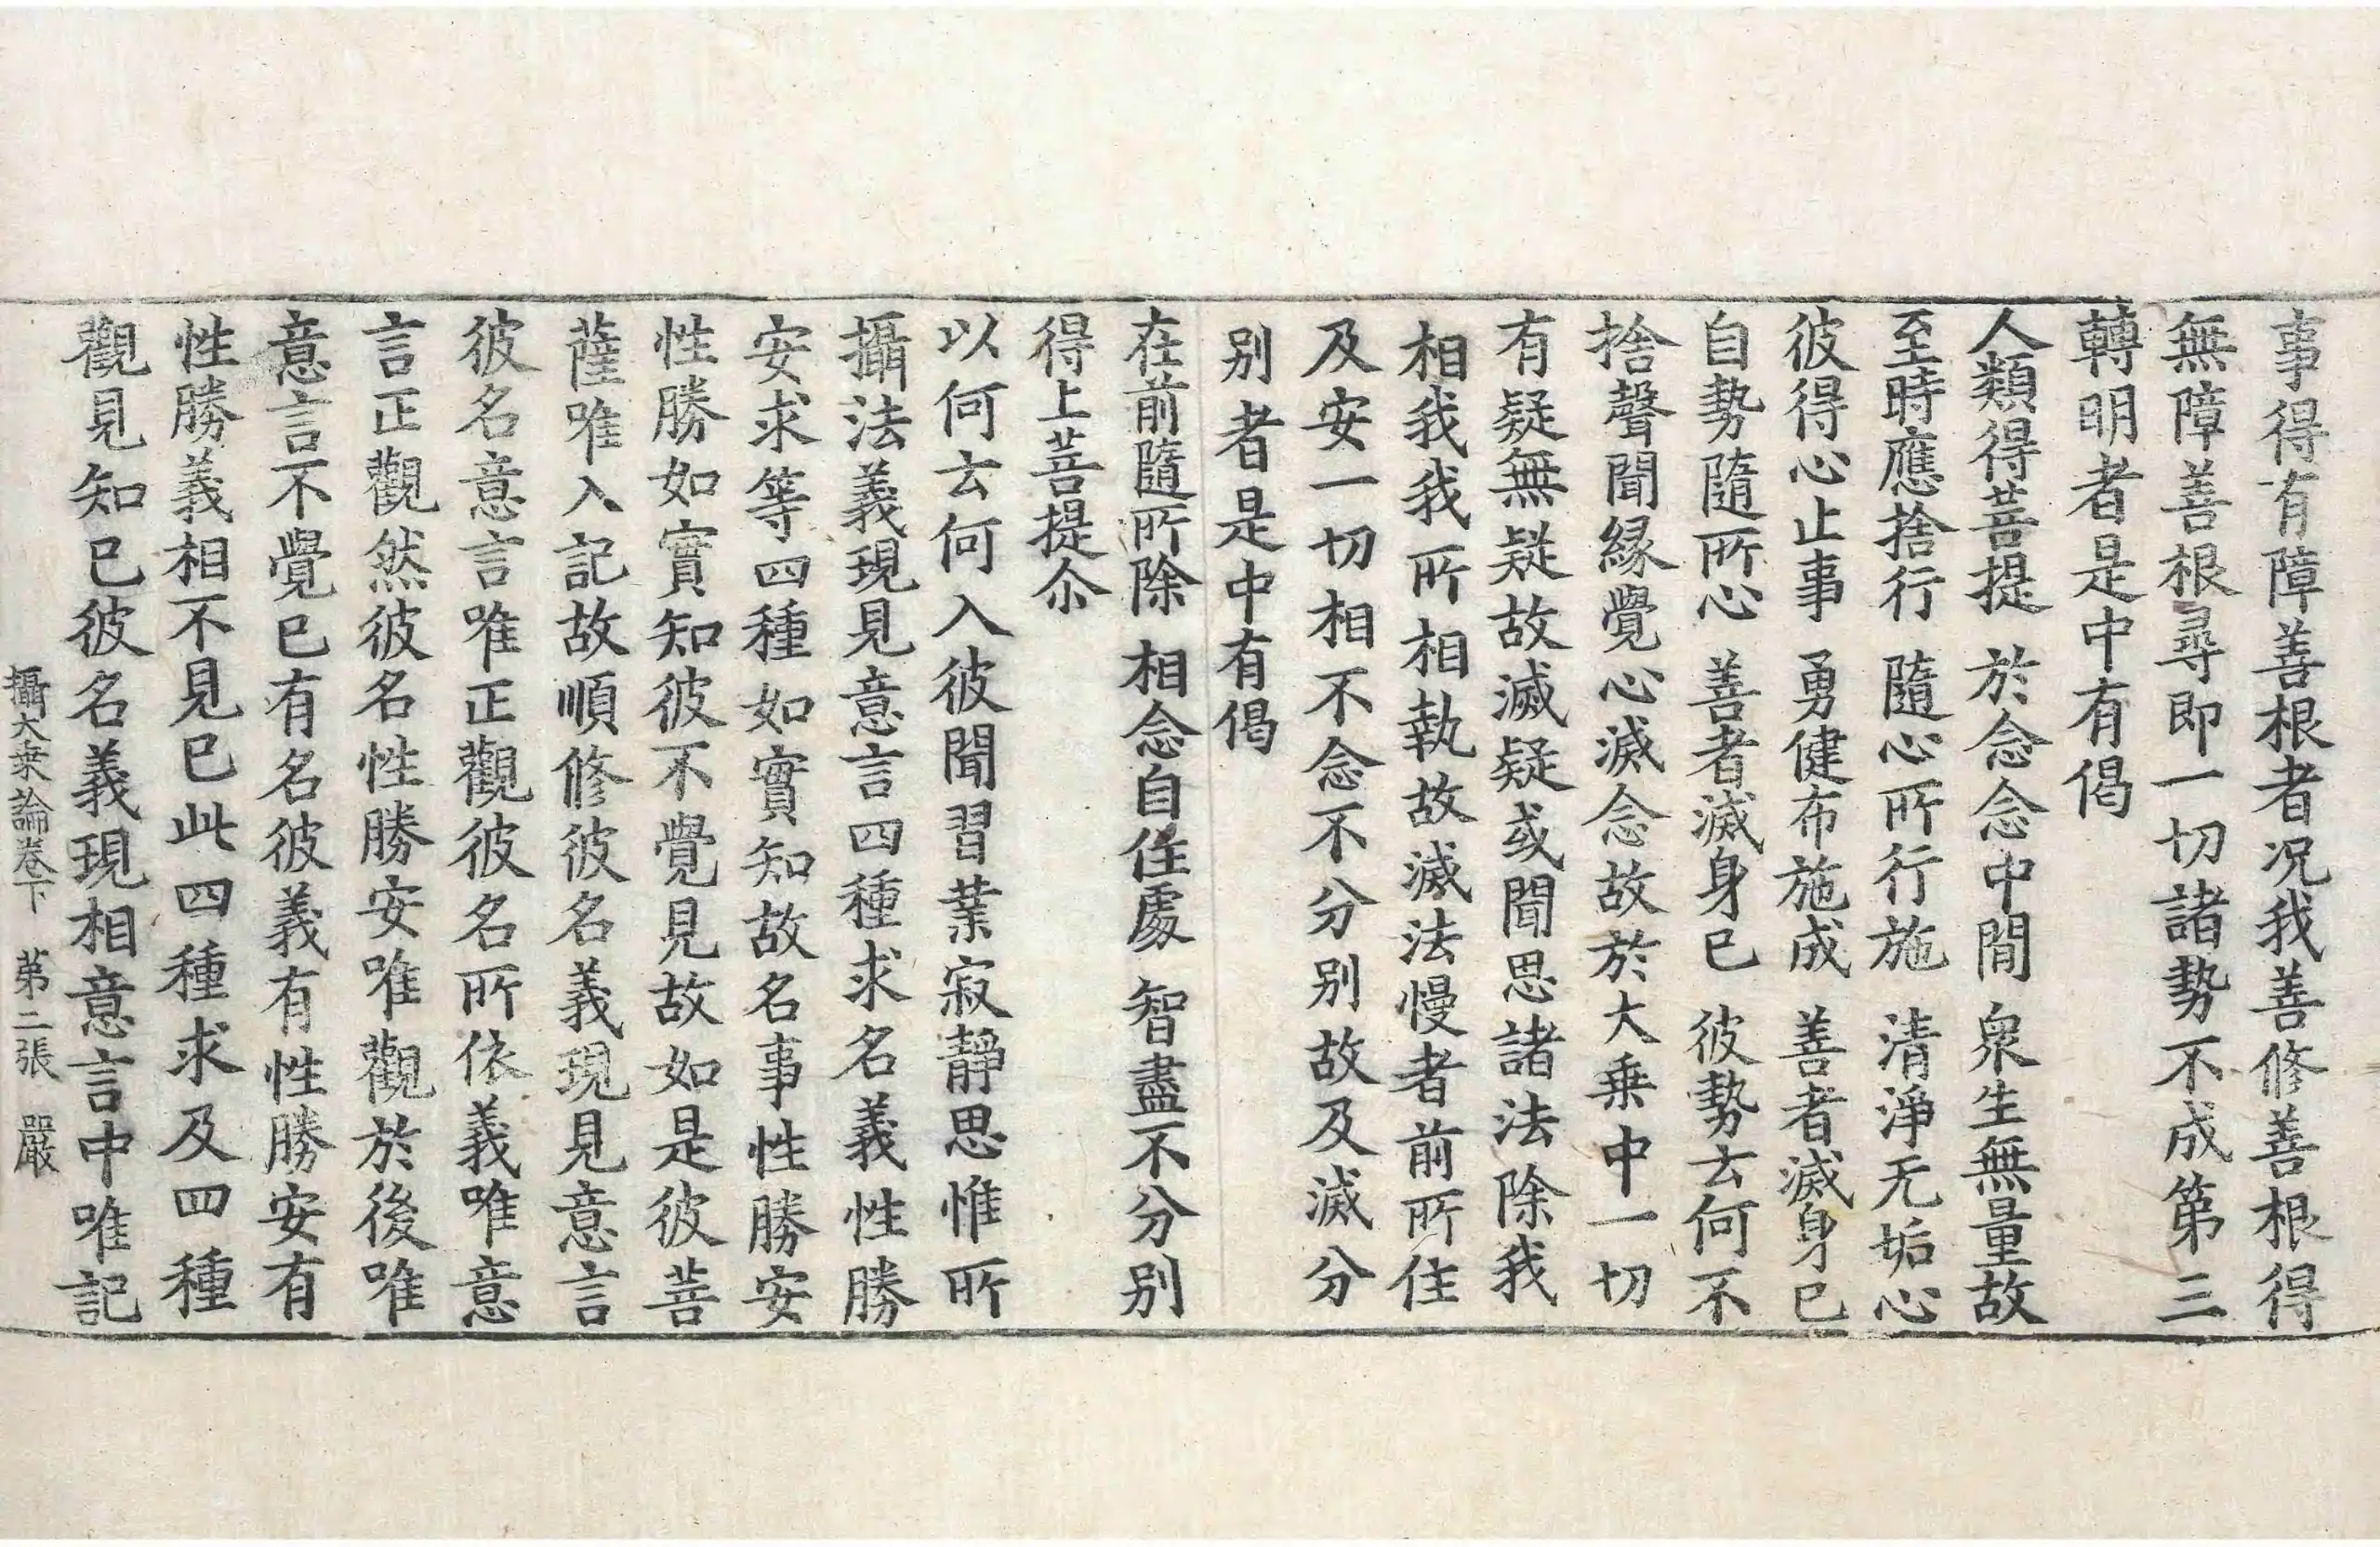 事得有障善根者况我善修善根得
無障善根尋即一切諸勢不成第三
轉明者是中有偈
人類得菩提　於念念中間　衆生無量故
至時應捨行　隨心所行施　清淨无垢心
彼得心止事　勇健布施成　善者滅身已
自勢隨所心　善者滅身已　彼勢去何不
捨聲聞緣覺心滅念故於大乗中一切
有疑無疑故滅疑或聞思諸法除我
相我我所相執故滅法慢者前所住
及安一切相不念不分别故及滅分
别者是中有偈
在前隨所除　相念自住處　智盡不分别
得上菩提尒
以何去何入彼聞習業寂靜思惟所
攝法義現見意言四種求名義性勝
安求等四種如實知故名事性勝安
性勝如實知彼不覺見故如是彼菩
薩唯入記故順修彼名義現見意言
彼名意言唯正觀彼名所依義唯意
言正觀然彼名性勝安唯觀於後唯
意言不覺已有名彼義有性勝安有
性勝義相不見已此四種求及四種
觀見知已彼名義現相意言中唯記
攝大乗論卷下　第二張　嚴